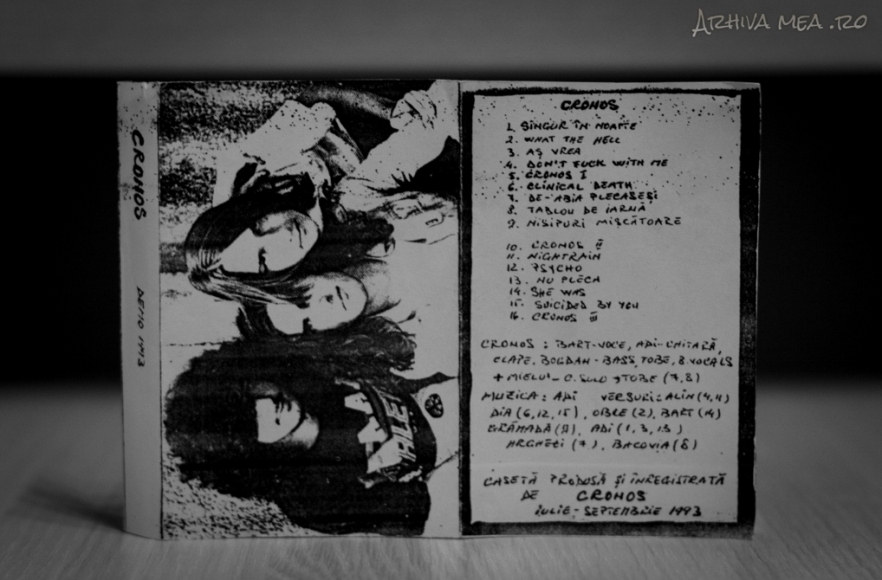 ARHIVA MEA.RO
CRONOS
DEMO 1993
CRONOS
1. SINGUR ÎN NOAPTE
2. WHAT THE HELL
3. AȘ VREA
4. DON'T FUCK WITH ME
5. CRONOS I
6. CLINICAL DEATH
7. DE-ABIA PLECASEȘI
8. TABLOU DE IARNĂ
9. NISIPURI MIȘCĂTOARE
10. CRONOS II
11. NIGHTRAIN
12. PSYCHO
13. NU PLECA
14. SHE WAS
15. SUICIDED BY YOU
16. CRONOS III
CRONOS: BART-VOCE, ADI-CHITARĂ,
CLAPE, BOGDAN-BASS, TOBE, B.VOCALS
+ MIELU'- C. SOLO ȘI TOBE (7,8)
MUZICA: ADI VERSURI: ALIN (4,11)
DIA (6,12,15), OBLE (2), BART (14)
GRĂMADĂ (9), ADI (1,3,13)
ARGHEZI (7), BACOVIA (8)
CASETĂ PRODUSĂ ȘI ÎNREGISTRATĂ
DE CRONOS
IULIE-SEPTEMBRIE 1993